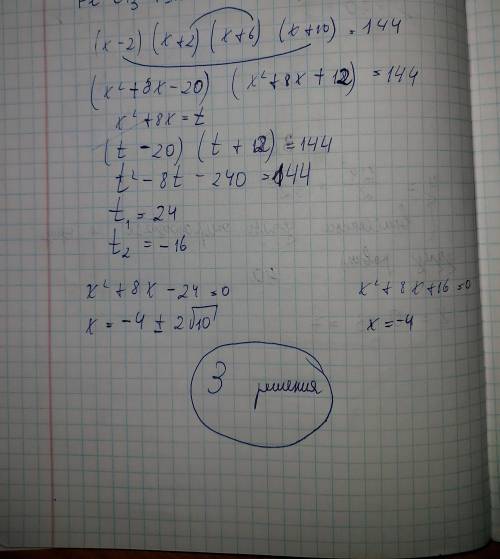 (x-2) (x+2) (x+6) (x+10) = 144
(x²+8x-20) (x²+8x+12) = 144
x²+8x=t
(t-20) (t+12)=144
t²-8t-240=144
t₁=24
t₂=-16
x²+8x-24=0
x=-4±2√10
x²+8x+16=0
x=-4
3 решения